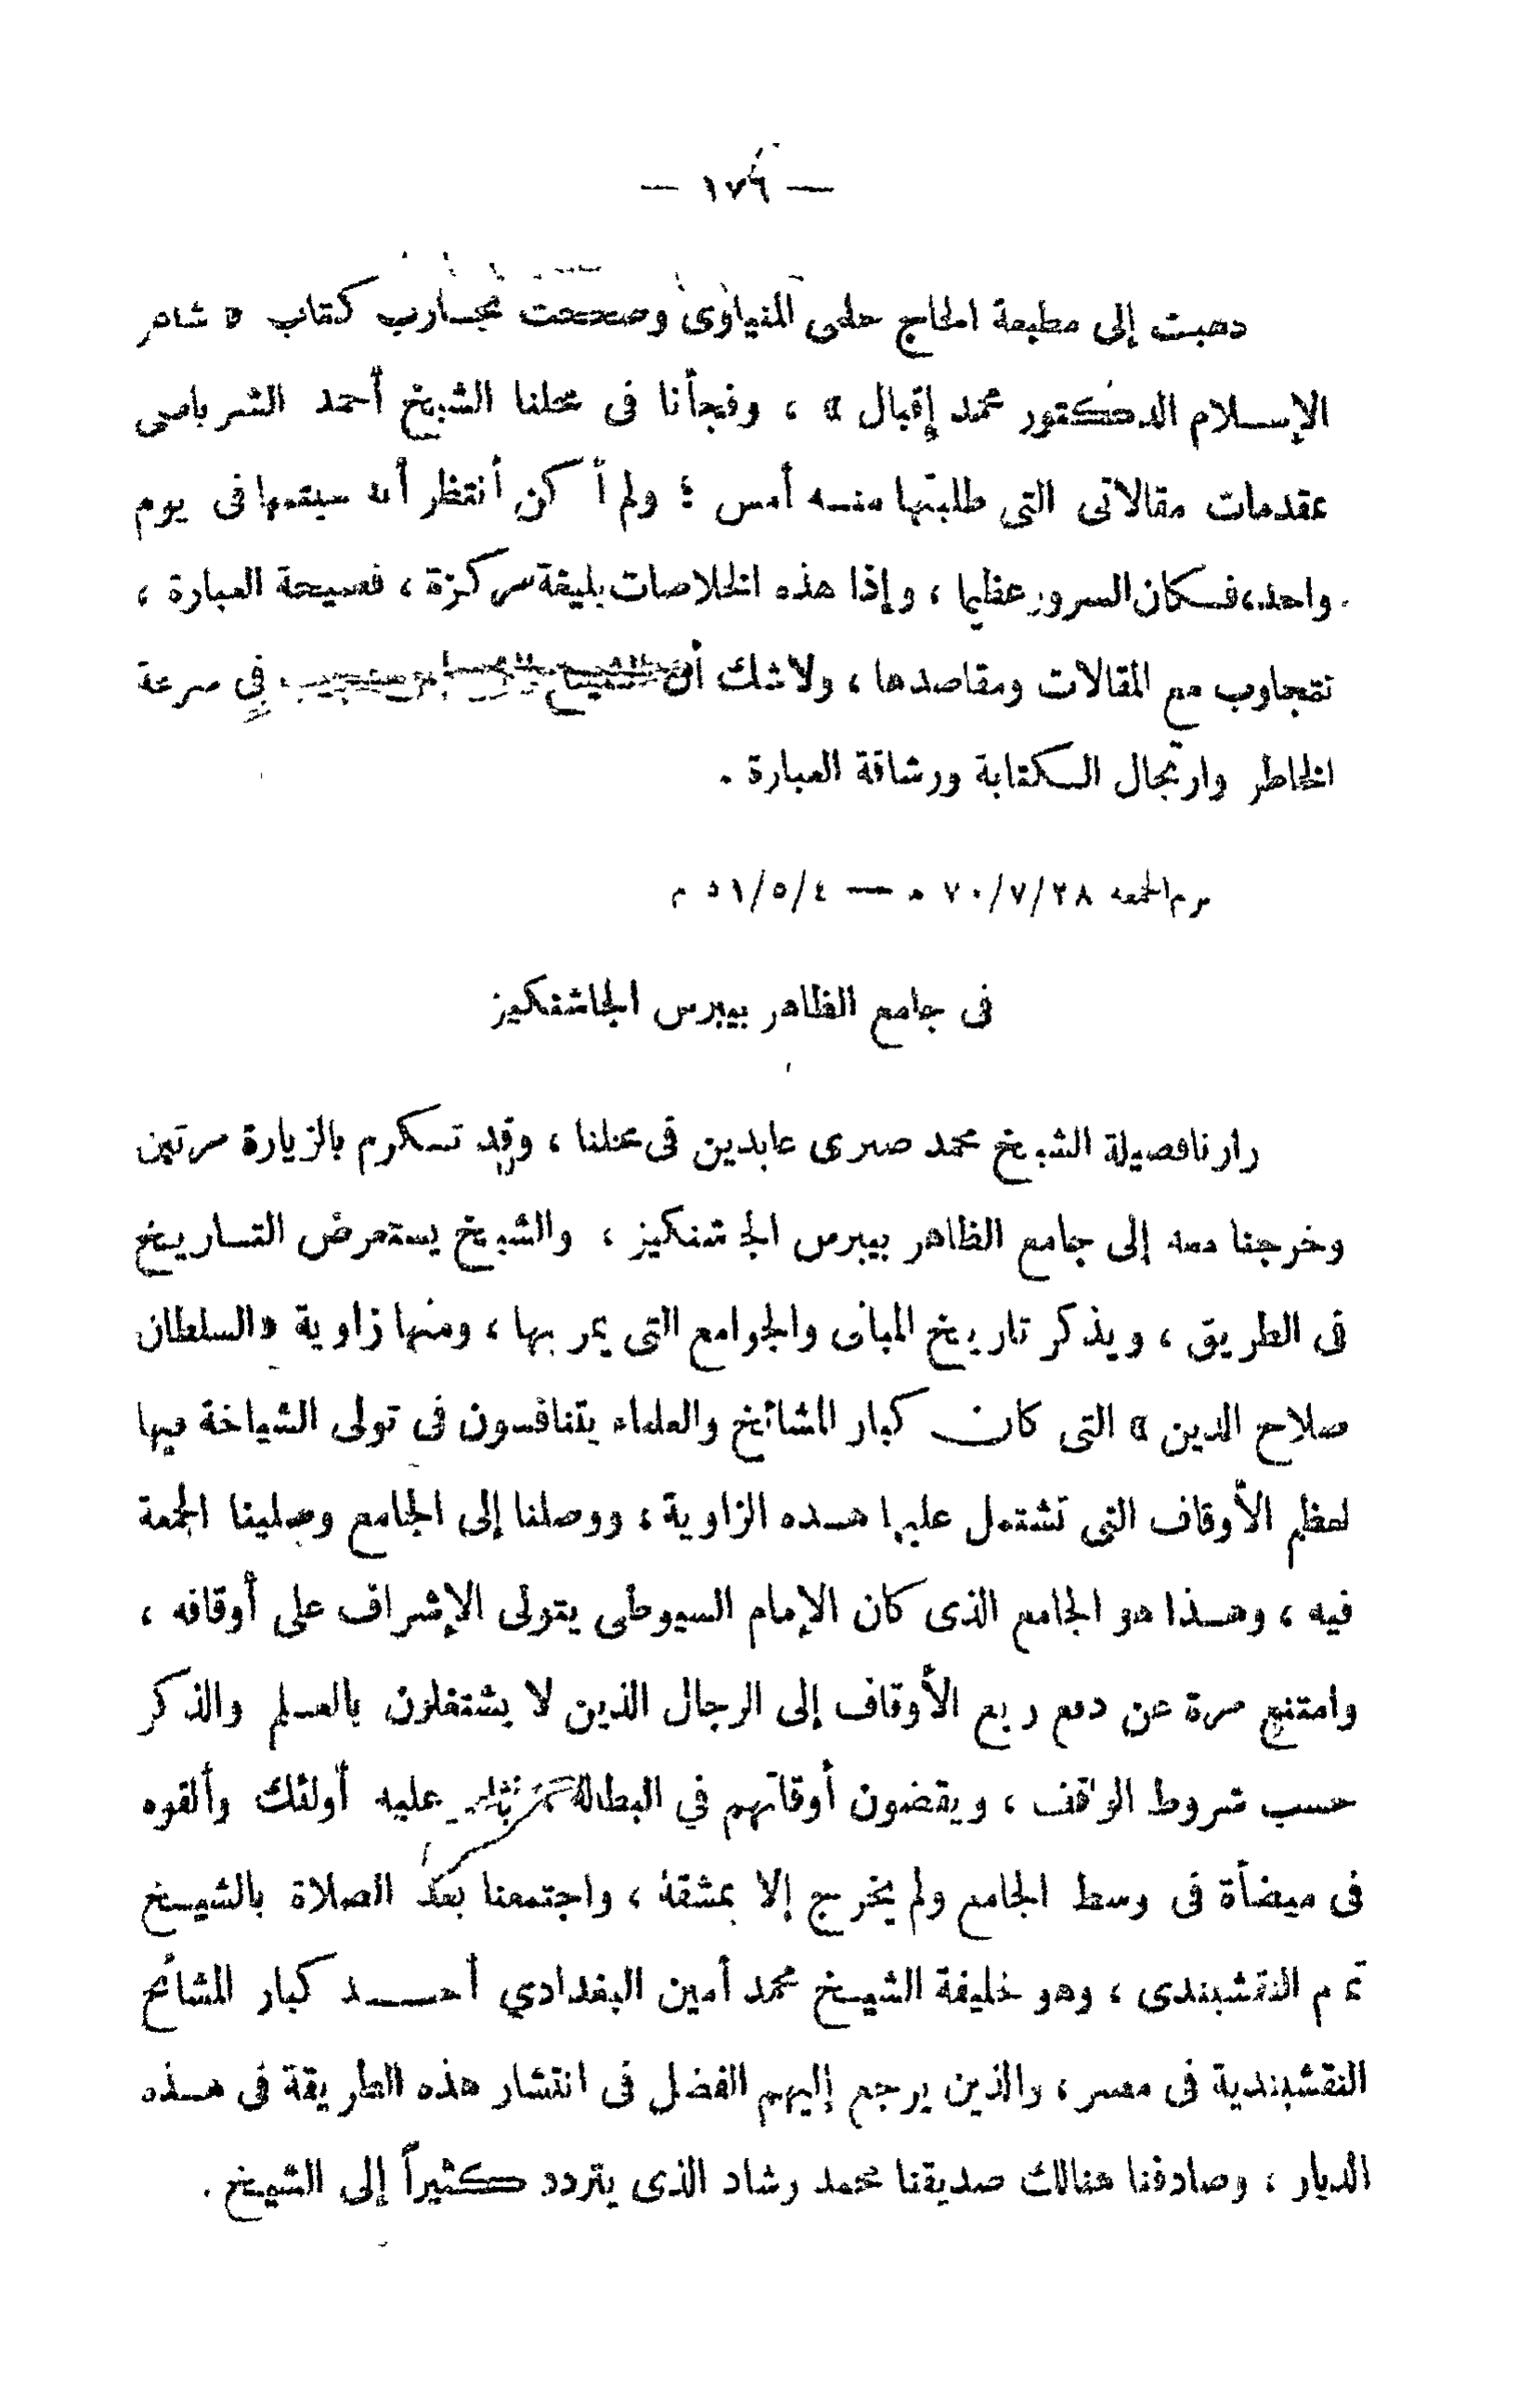 — ١٧٦ —
ذهبت إلى مطبعة الحاج حلمى المنياوى وصححت تجارب كتاب « شاعر
الإسلام الدكتور محمد إقبال » ، وفجأنا فى محلنا الشيخ أحمد الشرباصى
بمقدمات مقالاتى التى طلبتها منه أمس ؛ ولم أكن أنتظر أنه سيتمها فى يوم
واحد، فكان السرور عظيما ، وإذا هذه الخلاصات بليغة مركزة ، فصيحة العبارة ،
تتجاوب مع المقالات ومقاصدها ، ولاشك أن الشيخ الشرباصى عجيب في سرعة
الخاطر وارتجال الكتابة ورشاقة العبارة .
يوم الجمعة ٧٠/٧/٢٨ هـ — ٥١/٥/٤ م
فى جامع الظاهر بيبرس الجاشنكيز
زارنا فضيلة الشيخ محمد صبرى عابدين فى محلنا ، وقد تكرم بالزيارة مرتين
وخرجنا معه إلى جامع الظاهر بيبرس الجاشنكيز ، والشيخ يستعرض التاريخ
فى الطريق ، ويذكر تاريخ المبانى والجوامع التى يمر بها ، ومنها زاوية « السلطان
صلاح الدين » التى كان كبار المشائخ والعلماء يتنافسون فى تولى الشياخة فيها
لعظم الأوقاف التى تشتمل عليها هذه الزاوية ، ووصلنا إلى الجامع وصلينا الجمعة
فيه ، وهذا هو الجامع الذى كان الإمام السيوطى يتولى الإشراف على أوقافه ،
وامتنع مرة عن دفع ريع الأوقاف إلى الرجال الذين لا يشتغلون بالعلم والذكر
حسب شروط الواقف ، ويقضون أوقاتهم في البطالة فثار عليه أولئك وألقوه
فى ميضأة فى وسط الجامع ولم يخرج إلا بمشقة ، واجتمعنا بعد الصلاة بالشيخ
النقشبندى ، وهو خليفة الشيخ محمد أمين البغدادي أحد كبار المشائخ
النقشبندية فى مصر ، والذين يرجع إليهم الفضل فى انتشار هذه الطريقة فى هذه
الديار ، وصادفنا هنالك صديقنا محمد رشاد الذى يتردد كثيراً إلى الشيخ .